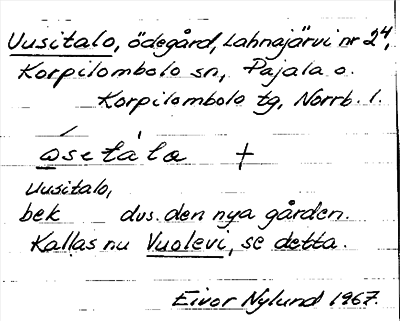 Uusitalo, ödegård, Lahnajärvi nr 24,
Korpilombolo sn, Pajala o.
Korpilombolo tg, Norrb. l.
ɯ́setálɑ +
Uusitalo,
bek dvs. den nya gården.
Kallas nu Vuolevi, se detta.
Eivor Nylund 1967.